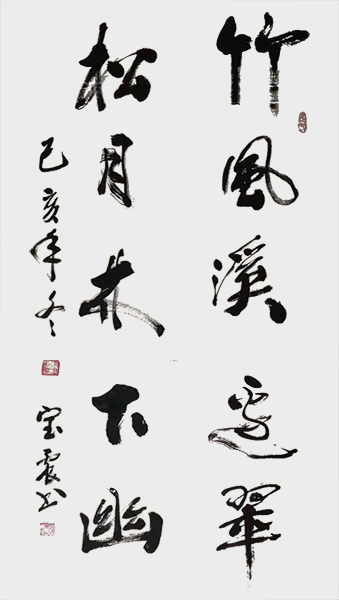 竹風溪邊翠
松月林下幽
己亥年冬
宝震书